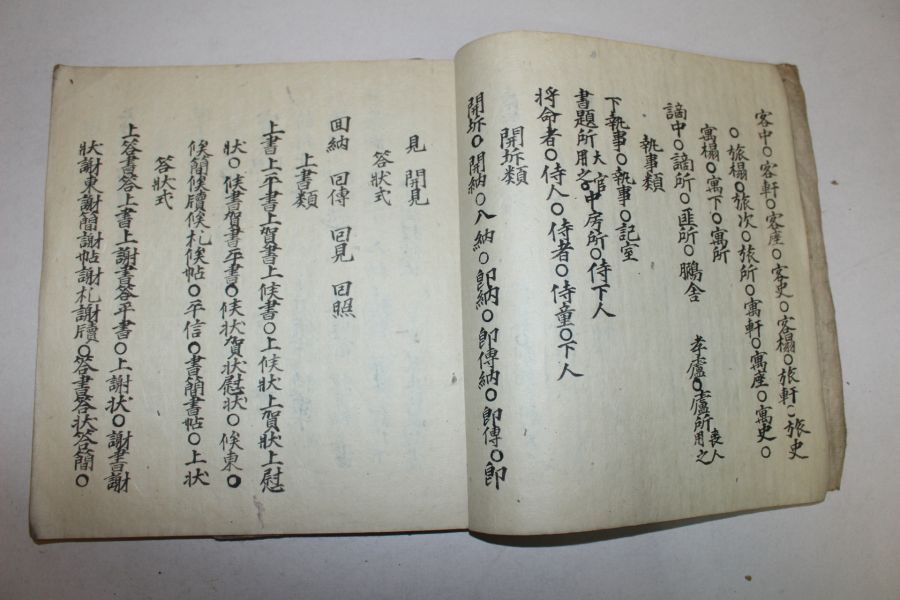 客中○客軒○客座○客史○客榻○旅軒○旅史
○旅榻○旅次○旅所○寓軒○寓座○寓史○
寓榻○寓下○寓所
謫中○謫所○匪所○鵬舍 孝廬○廬所喪人用之
執事類
下執事○執事○記室
書題所用之大官中房所○侍下人
將命者○侍人○侍者○侍童○下人
開坼類
開坼○開納○入納○卽納○卽傳納○卽傳○卽
見 開見
答狀式
回納 回傳 回見 回照
上書類
上書上平書上賀書上候書○上候狀上賀狀上慰
狀○候書賀書平書○候狀賀狀慰狀○候柬○
候簡候牘候札候帖○平信○書簡書帖○上狀
答狀式
上答書答上書上謝書答平書○上謝狀○謝書謝
狀謝柬謝簡謝帖謝札謝牘○答書答狀答簡○